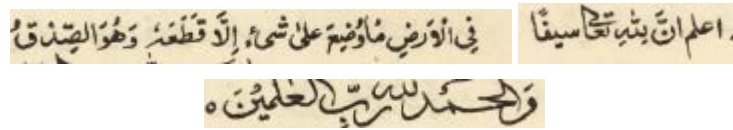 اعلم انَّ لِلّٰهِ تعالى سيفًا فِي الْاَرضِ مَا وُضِعَ عَلىٰ شیءٍ اِلَّا قَطَعَهٗ وَهُوَ الصِّدْقُ
وَالحَمْدُ لله رَبِّ العٰلمِيْنَ ه